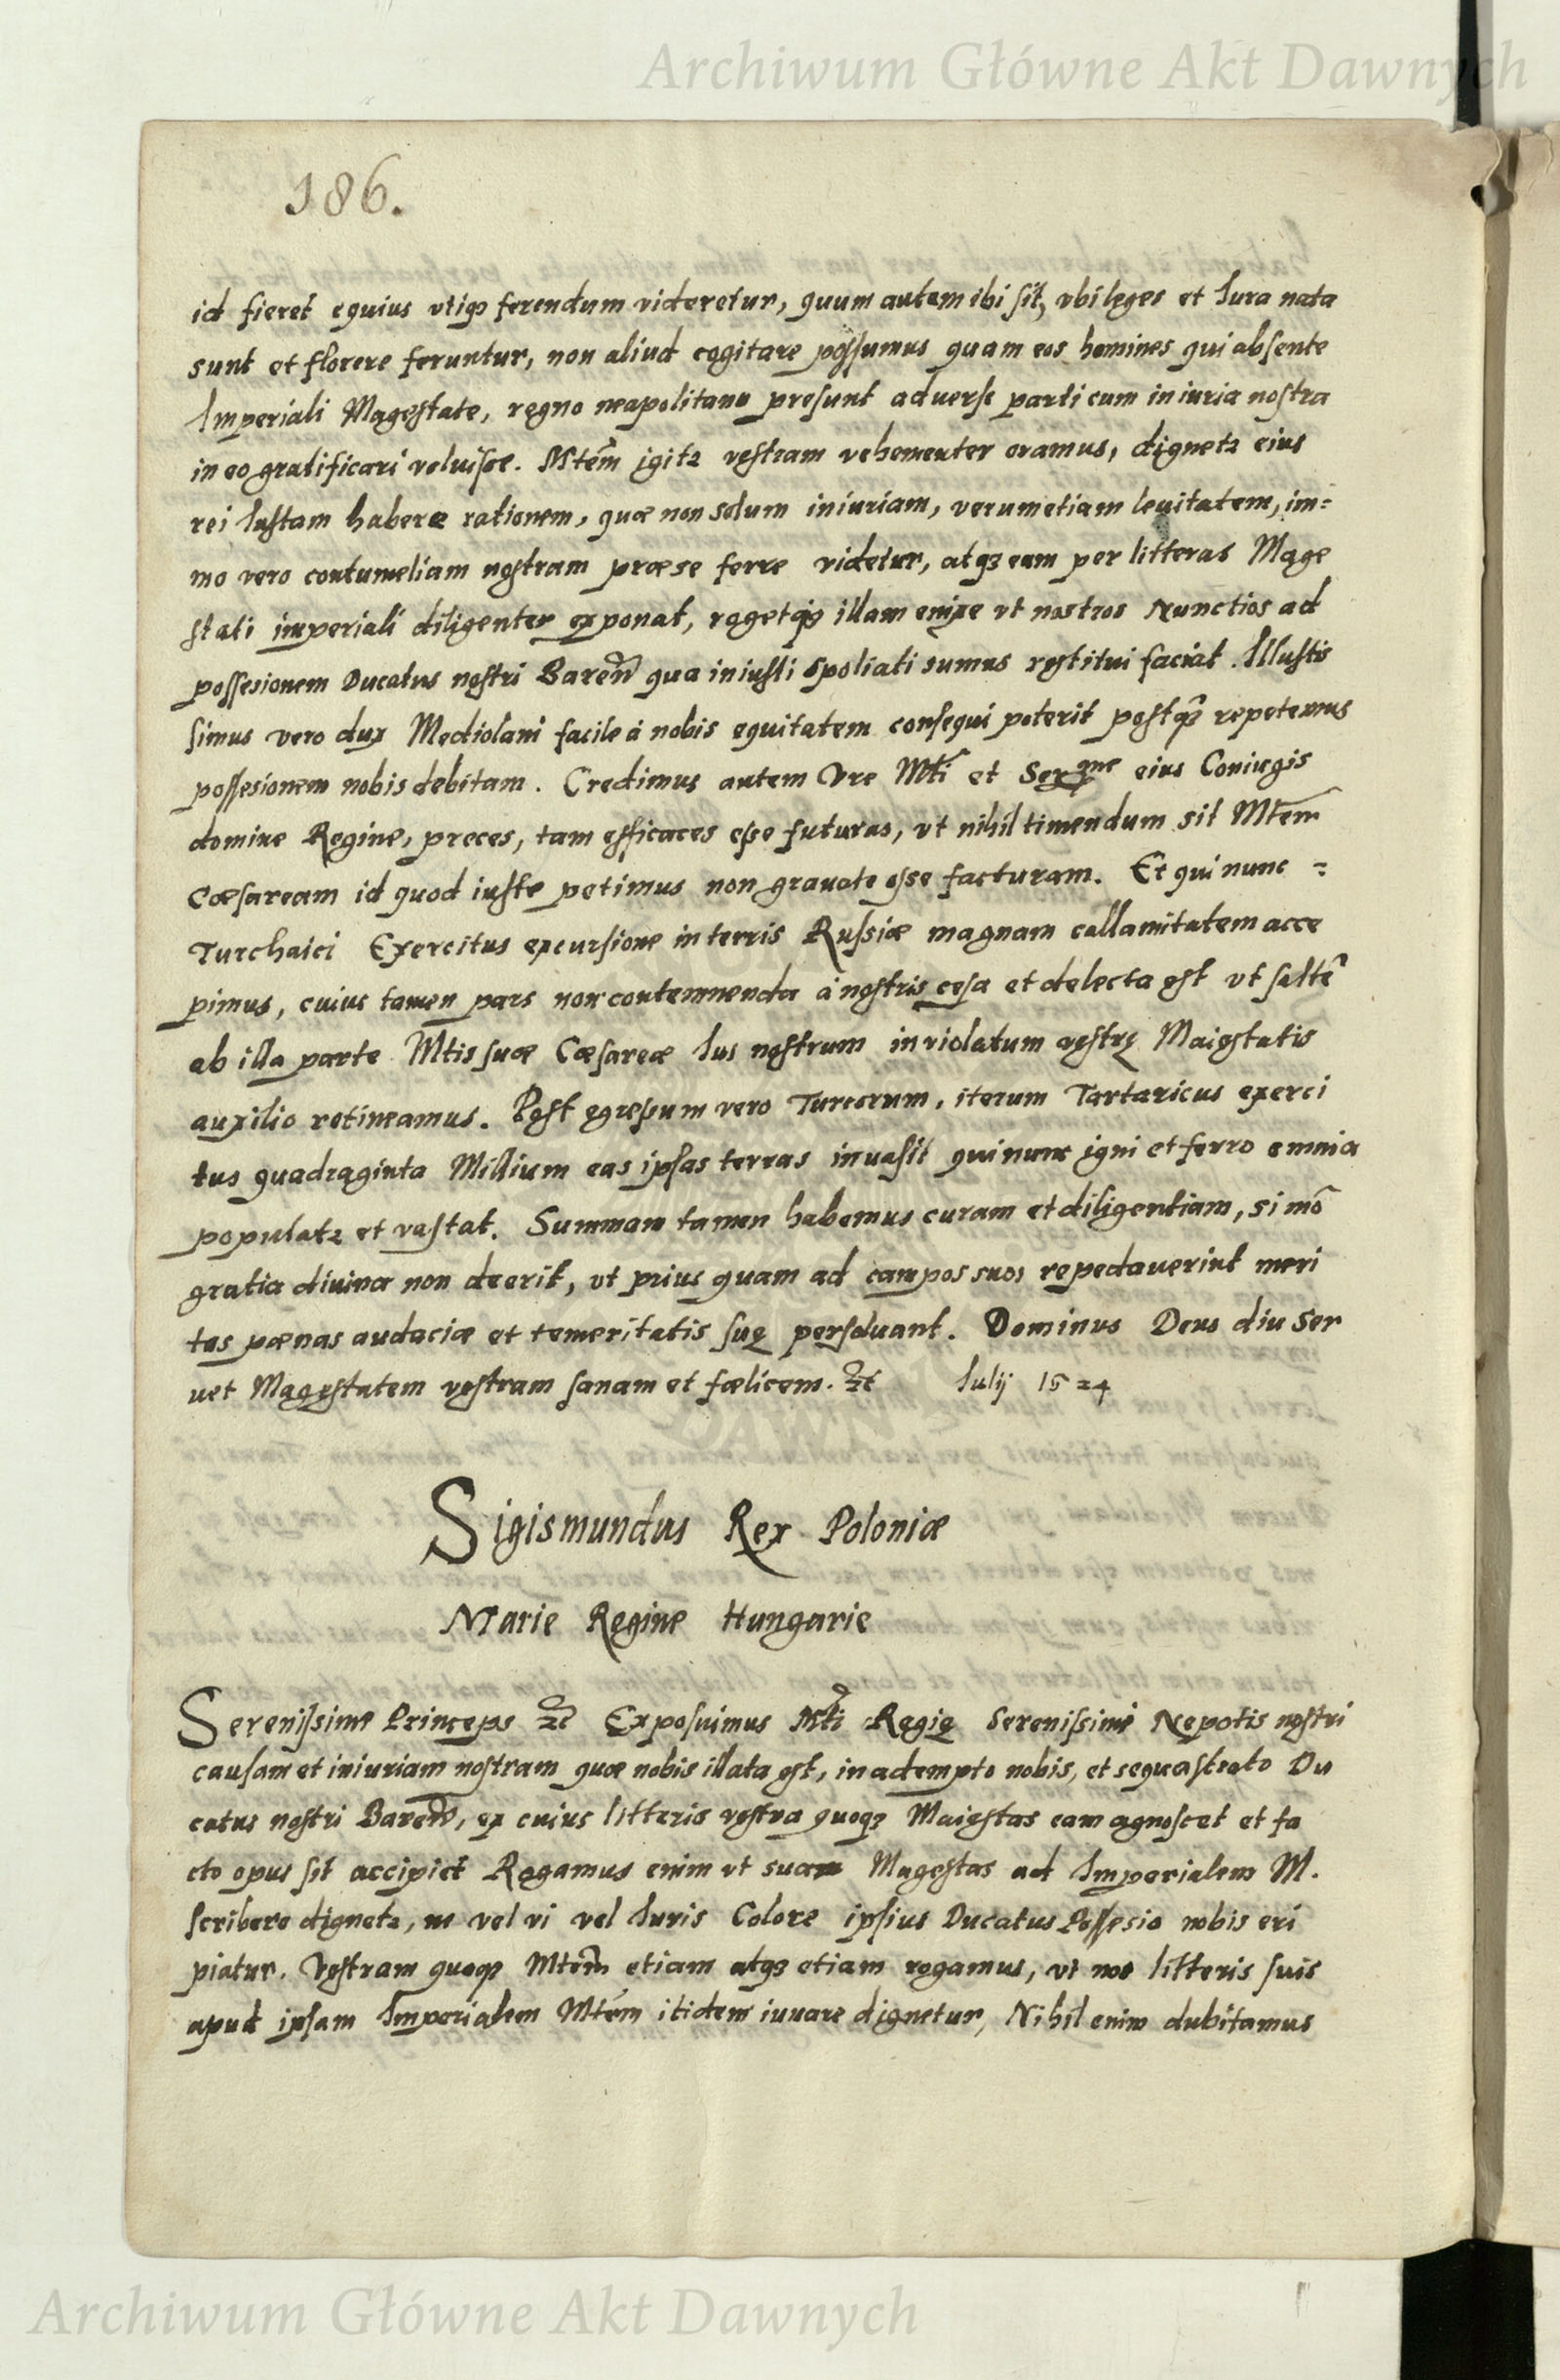 Archiwum Główne Akt Dawnych
186.
id fieret equius utiqз ferendum videretur, quum autem ibi sit, vbi leges et Iura nata
sunt et florere feruntur, non aliud cogitare possumus quam eos homines qui absente
Imperiali Magestate, regno neapolitano presunt adverse parti cum iniuria nostra
in eo gratificari voluisse. Mtem̃ igitr vestram vehementer oramus, dignetr eius
rei Iustam habere rationem, quæ non solum iniuriam, verumetiam levitatem, im=
mo vero contumeliam nostram præ se ferre videtur, atqз eam per litteras Mage
stati imperiali diligenter exponat, rogetqз illam enixe vt nostros Nunctios ad
possesionem Ducatus nostri Bareñ qua iniusti spoliati sumus restitui faciat. Illustris
simus vero dux Mediolani facile à nobis equitatem consequi poterit postqз̃ repetemus
possesionem nobis debitam. Credimus autem Vre Mti et Serme eius Coniugis
domine Regine, preces, tam efficaces esse futuras, vt nihil timendum sit Mtem̃
Cæsaream id quod iuste petimus non gravate esse facturam. Et qui nunc =
Turchaici Exercitus excursione in terris Russiæ magnam callamitatem acce
pimus, cuius tamen pars non contemnenda à nostris cesa et delecta est vt saltẽ
ab illa parte Mtis suæ Cæsareæ Ius nostrum inviolatum vestrę Maiestatis
auxilio retineamus. Post egressum vero Turcorum, iterum Tartaricus exerci
tus quadraginta Millium eas ipsas terras invasit qui nunc igni et ferro omnia
populatr et vastat. Summam tamen habemus curam et diligentiam, si mõ
gratia divina non deerit, vt prius quam ad campos suos repedaverint meri
tas pœnas audaciæ et temeritatis suę persolvant. Dominus Deus diu Ser
vet Magestatem vestram sanam et fœlicem. &c̃ Iulij 1524
Sigismundus Rex Poloniæ
Marie Regine Hungarie
Serenissime Princeps &c̃ Exposuimus Mti Regię Serenissimi Nepotis nostri
causam et iniuriam nostram quæ nobis illata est, in adempto nobis, et sequastrato Du
catus nostri Bareñ, ex cuius litteris vestra quoqз Maiestas eam agnoscet et fa
cto opus sit accipiet Rogamus enim vt suam Magestas ad Imperialem M.
scribere dignetr, ne vel vi vel Iuris Colore ipsius Ducatus Possesio nobis eri
piatur. Vestram quoqз Mtem̃ etiam atqз etiam rogamus, vt nos litteris suis
apud ipsam Imperialem Mtem̃ itidem iuvare dignetur, Nihil enim dubitamus
Archiwum Główne Akt Dawnych